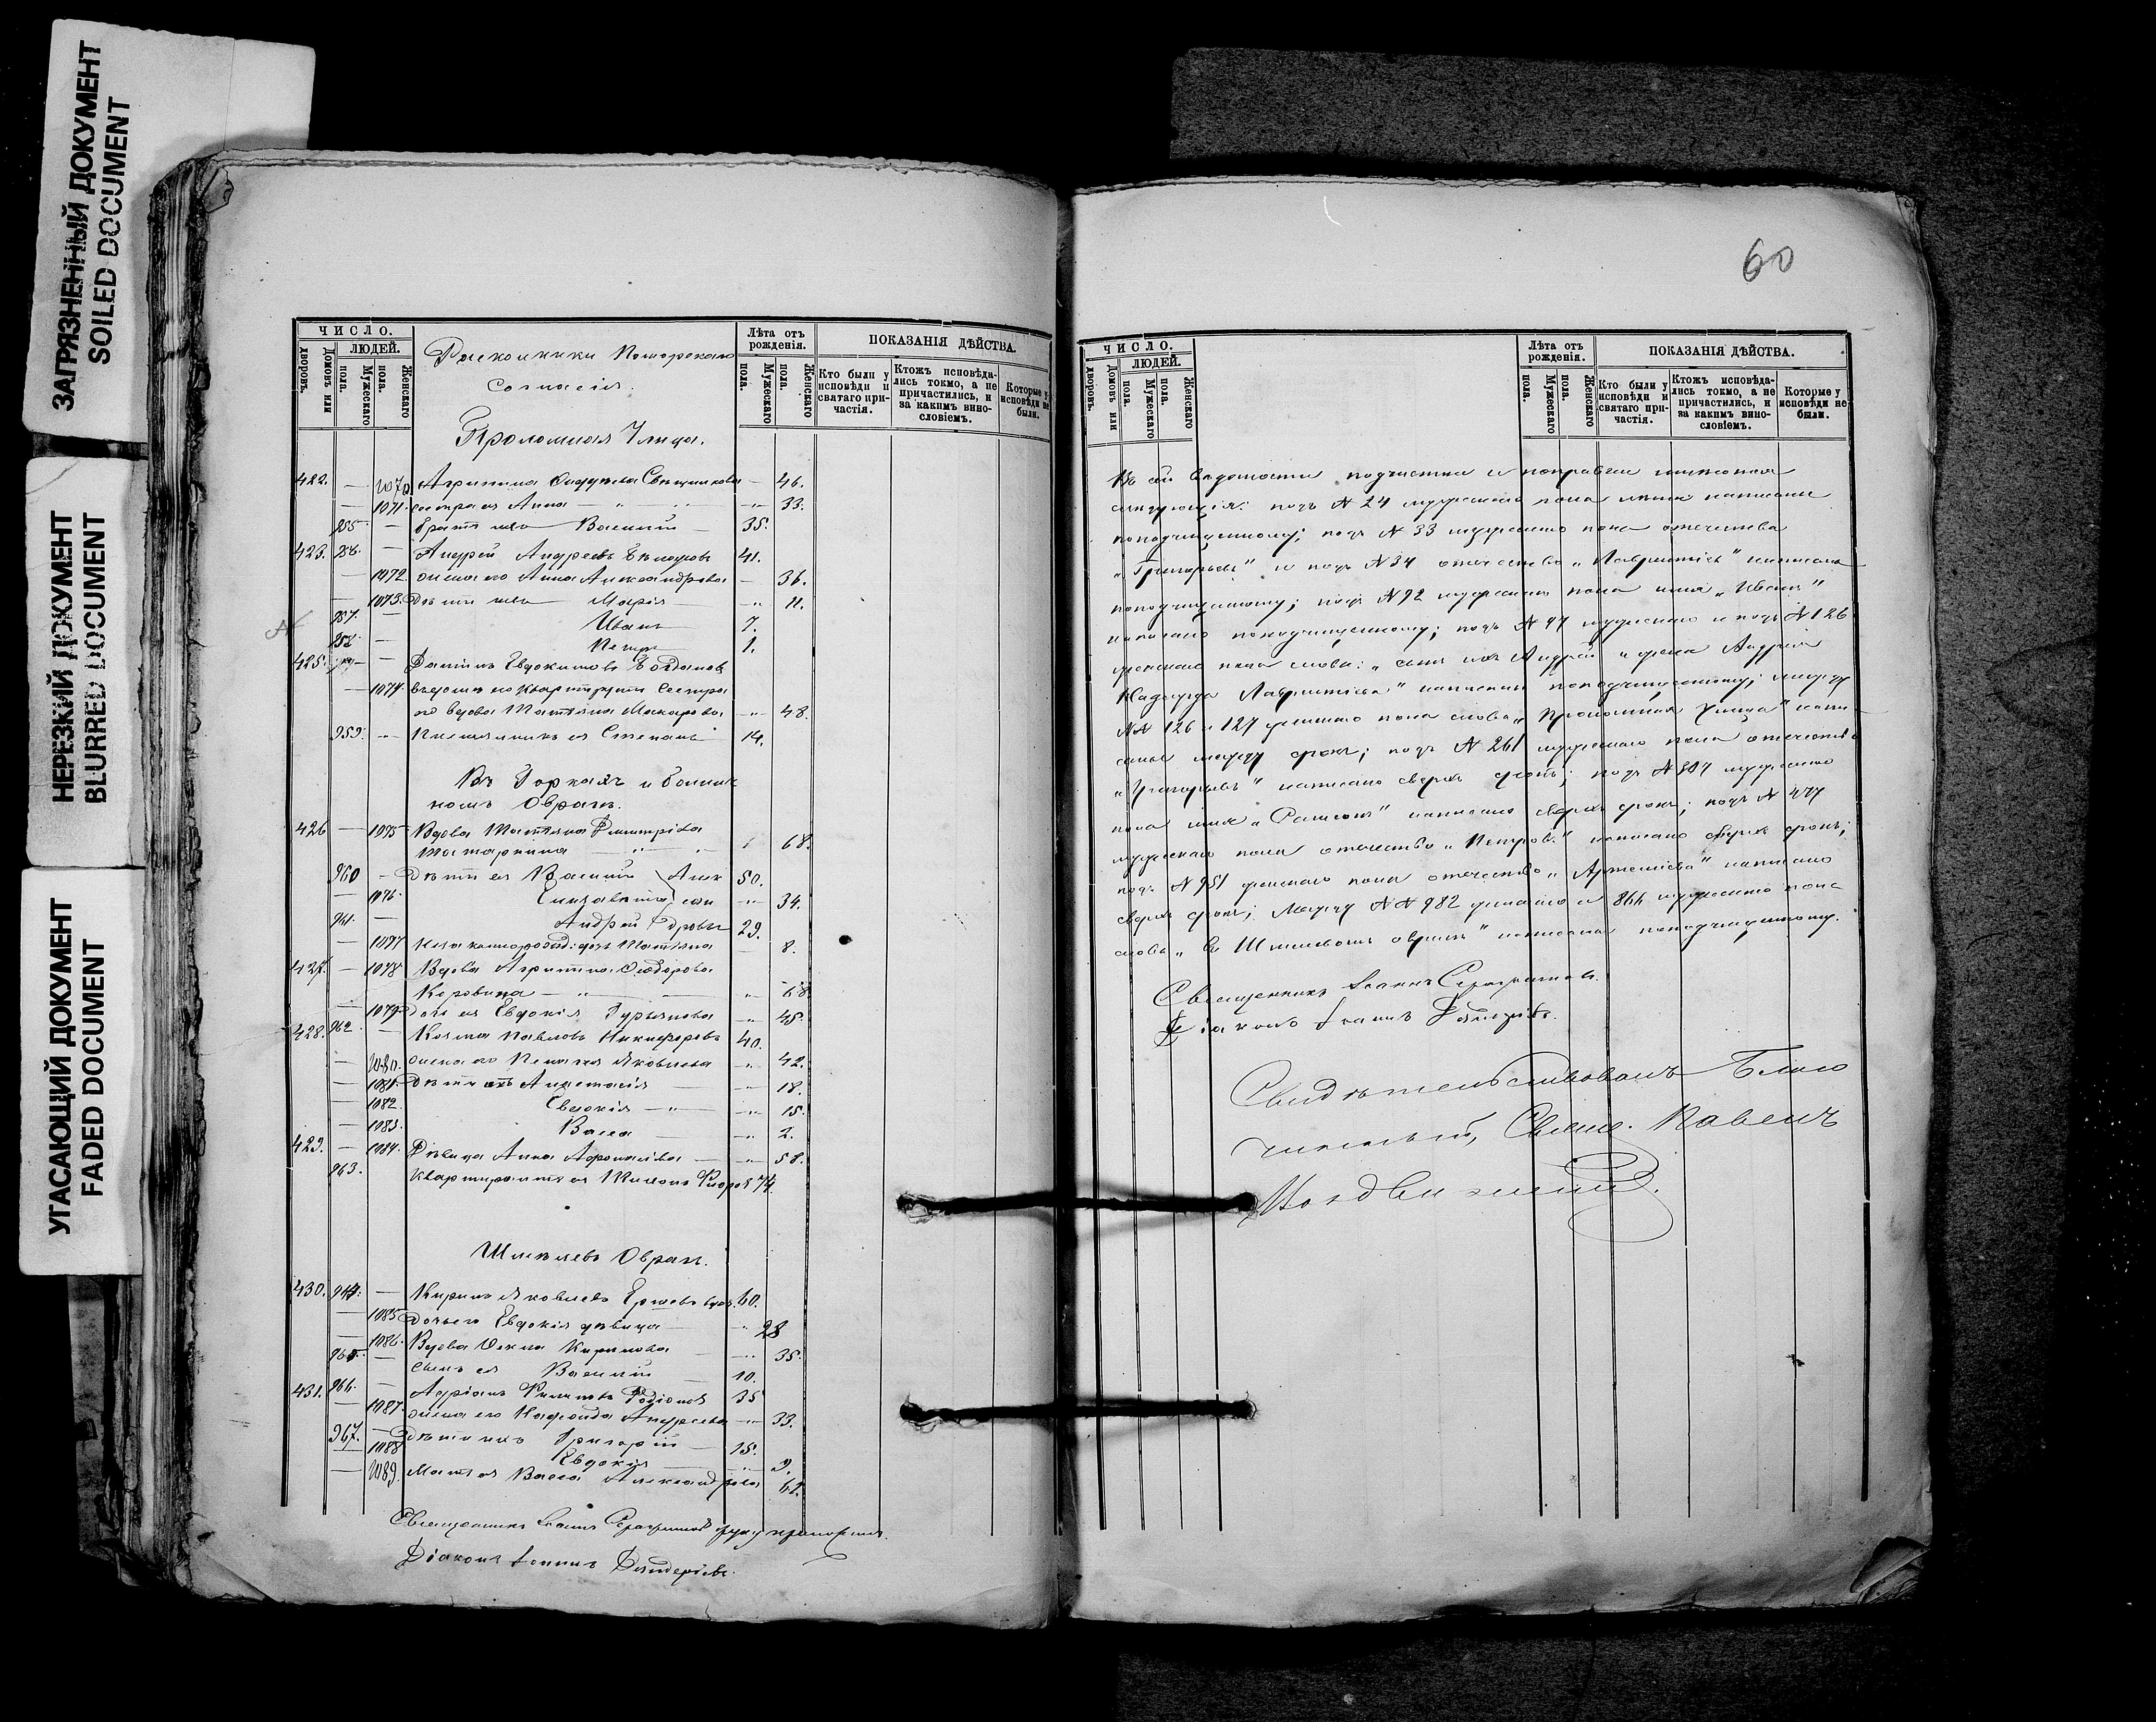 ЗАГРЯЗНЕННЫЙ ДОКУМЕНТ
SOILED DOCUMENT
НЕРЕЗКИЙ ДОКУМЕНТ
BLURRED DOCUMENT
УГАСАЮЩИЙ ДОКУМЕНТ
FADED DOCUMENT
ЧИСЛО.
ЛЮДЕЙ.
Домовъ или дворовъ.
Мужескаго пола.
Женскаго пола.
Раскольники Поморскаго
Согласія.
Лѣта отъ рожденія.
Мужескаго пола.
Женскаго пола.
ПОКАЗАНІЯ ДѢЙСТВА.
Кто были у исповѣди и святаго причастія.
Ктожъ исповѣдались токмо, а не причастились, и за какимъ винословіемъ.
Которые у исповѣди не были.
Проломная Улица.
422. — 1070 Агрипина Свѣшникова — 46.
— 1071. сестра ея Анна — " — 33.
955 — братъ Василій — 35.
423. — Андрей Андреевъ 41.
— 1072 жена его Анна Александрова — 36.
— 1073. Дѣти Марія — " 11.
957. — Иванъ 7.
958 — Петръ 1.
425. — Евдокимовъ Богдановъ
— 1074. сестра
его вдова Татьяна Макарова — " — 48.
959. — Племянникъ ея Степанъ 14.
Въ Горкахъ и
номъ Оврагѣ.
426 — 1075 Вдова Татьяна Дмитріева
68.
960 — Дѣти ея Василій Алек 50.
— 1076. Елизавета сан — 34.
961. — Андрей дровы 29.
— 1077 Татьяна 8.
427. — 1078 Вдова Агрипина Ѳедорова
— " — 68
— 1079 Дочь ея Евдокія Гурьянова — " 45.
428. 962 — Козма Павловъ Никифоровъ 40.
— 1080. жена его Пелагея Яковлева — " 42.
— 1081 Дѣти ихъ Анастасія — " 18.
— 1082. Евдокія — " — " 15.
— 1083. Васса — " 2.
429. — 1084. Дѣвица Анна Афонасьева — " 58.
963. Квартирантъ ея 74.
Шмелевъ Оврагъ.
430. 964. — Кирилъ Яковлевъ Ершевъ вдов. 60.
— 1085 Дочь его Евдокія дѣвица — " 28
— 1086. Вдова Ѳекла Кирилова — " 35.
965. — Сынъ ея Василій — 10.
431. 966. — Адріанъ Родіоновъ 35
— 1087. жена его Андреева — " 33.
967. — Дѣти ихъ Григорій — 15.
— 1088 Евдокія — 9.
— 1089. Мать ея Васса Александрова 62.
Священникъ Іоаннъ Серафимовъ руку приложилъ.
Діаконъ Іоаннъ
60
ЧИСЛО.
ЛЮДЕЙ.
Домовъ или дворовъ.
Мужескаго пола.
Женскаго пола.
Лѣта отъ рожденія.
Мужескаго пола.
Женскаго пола.
ПОКАЗАНІЯ ДѢЙСТВА.
Кто были у исповѣди и святаго причастія.
Ктожъ исповѣдались токмо, а не причастились, и за какимъ винословіемъ.
Которые у исповѣди не были.
Въ сей вѣдомости подчистки и поправки
слѣдующія: подъ № 24 мужескаго пола лѣта написаны
поподчищенному; подъ № 33 мужескаго пола отечество
„Григорьевъ" и подъ № 34 отечество „Лаврентіевъ" написано
поподчищенному; подъ № 92 мужескаго пола имя „Иванъ"
написано поподчищенному; подъ № 97 мужескаго и подъ № 126
женскаго пола слова: „сынъ ихъ Андрей" и жена Андрея
Надежда Лаврентіева" написаны поподчищенному; между
№№ 126 и 127 женскаго пола слова „Проломная Улица" напи-
саны между строкъ; подъ № 261 мужескаго пола отечество
„Григорьевъ" написано сверхъ строкъ; подъ № 304 мужескаго
пола имя написано сверхъ строкъ; подъ № 477
мужескаго пола отечество „Петровъ" написано сверхъ строкъ;
подъ № 951 женскаго пола отечество „Артемьева" написано
сверхъ строкъ; между №№ 982 женскаго и 866 мужескаго пола
слова „въ Шмелевомъ оврагѣ" написаны поподчищенному.
Священникъ Іоаннъ Серафимовъ.
Діаконъ Іоаннъ
Свидѣтельствовалъ Благо
чинный, Свящ. Павелъ
Воздвиженскій.